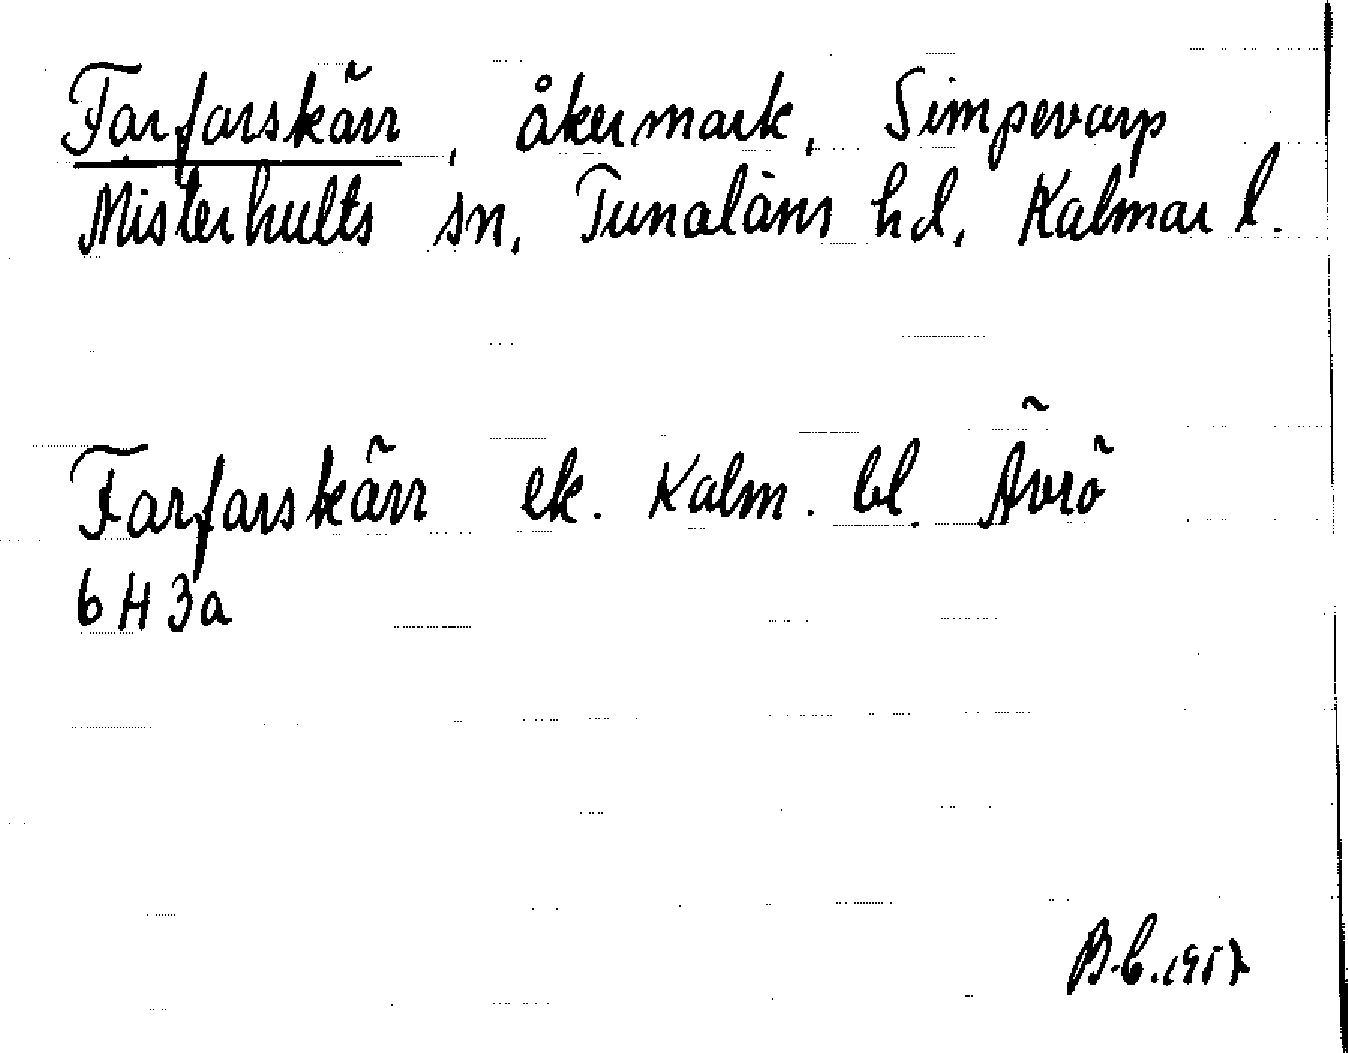 Farfarskärr, åkermark, Simpevarp
Misterhults sn, Tunaläns hd, Kalmar l.
Farfarskärr ek. Kalm. bl. Ävrö
6 H 3a
B-b. 1957